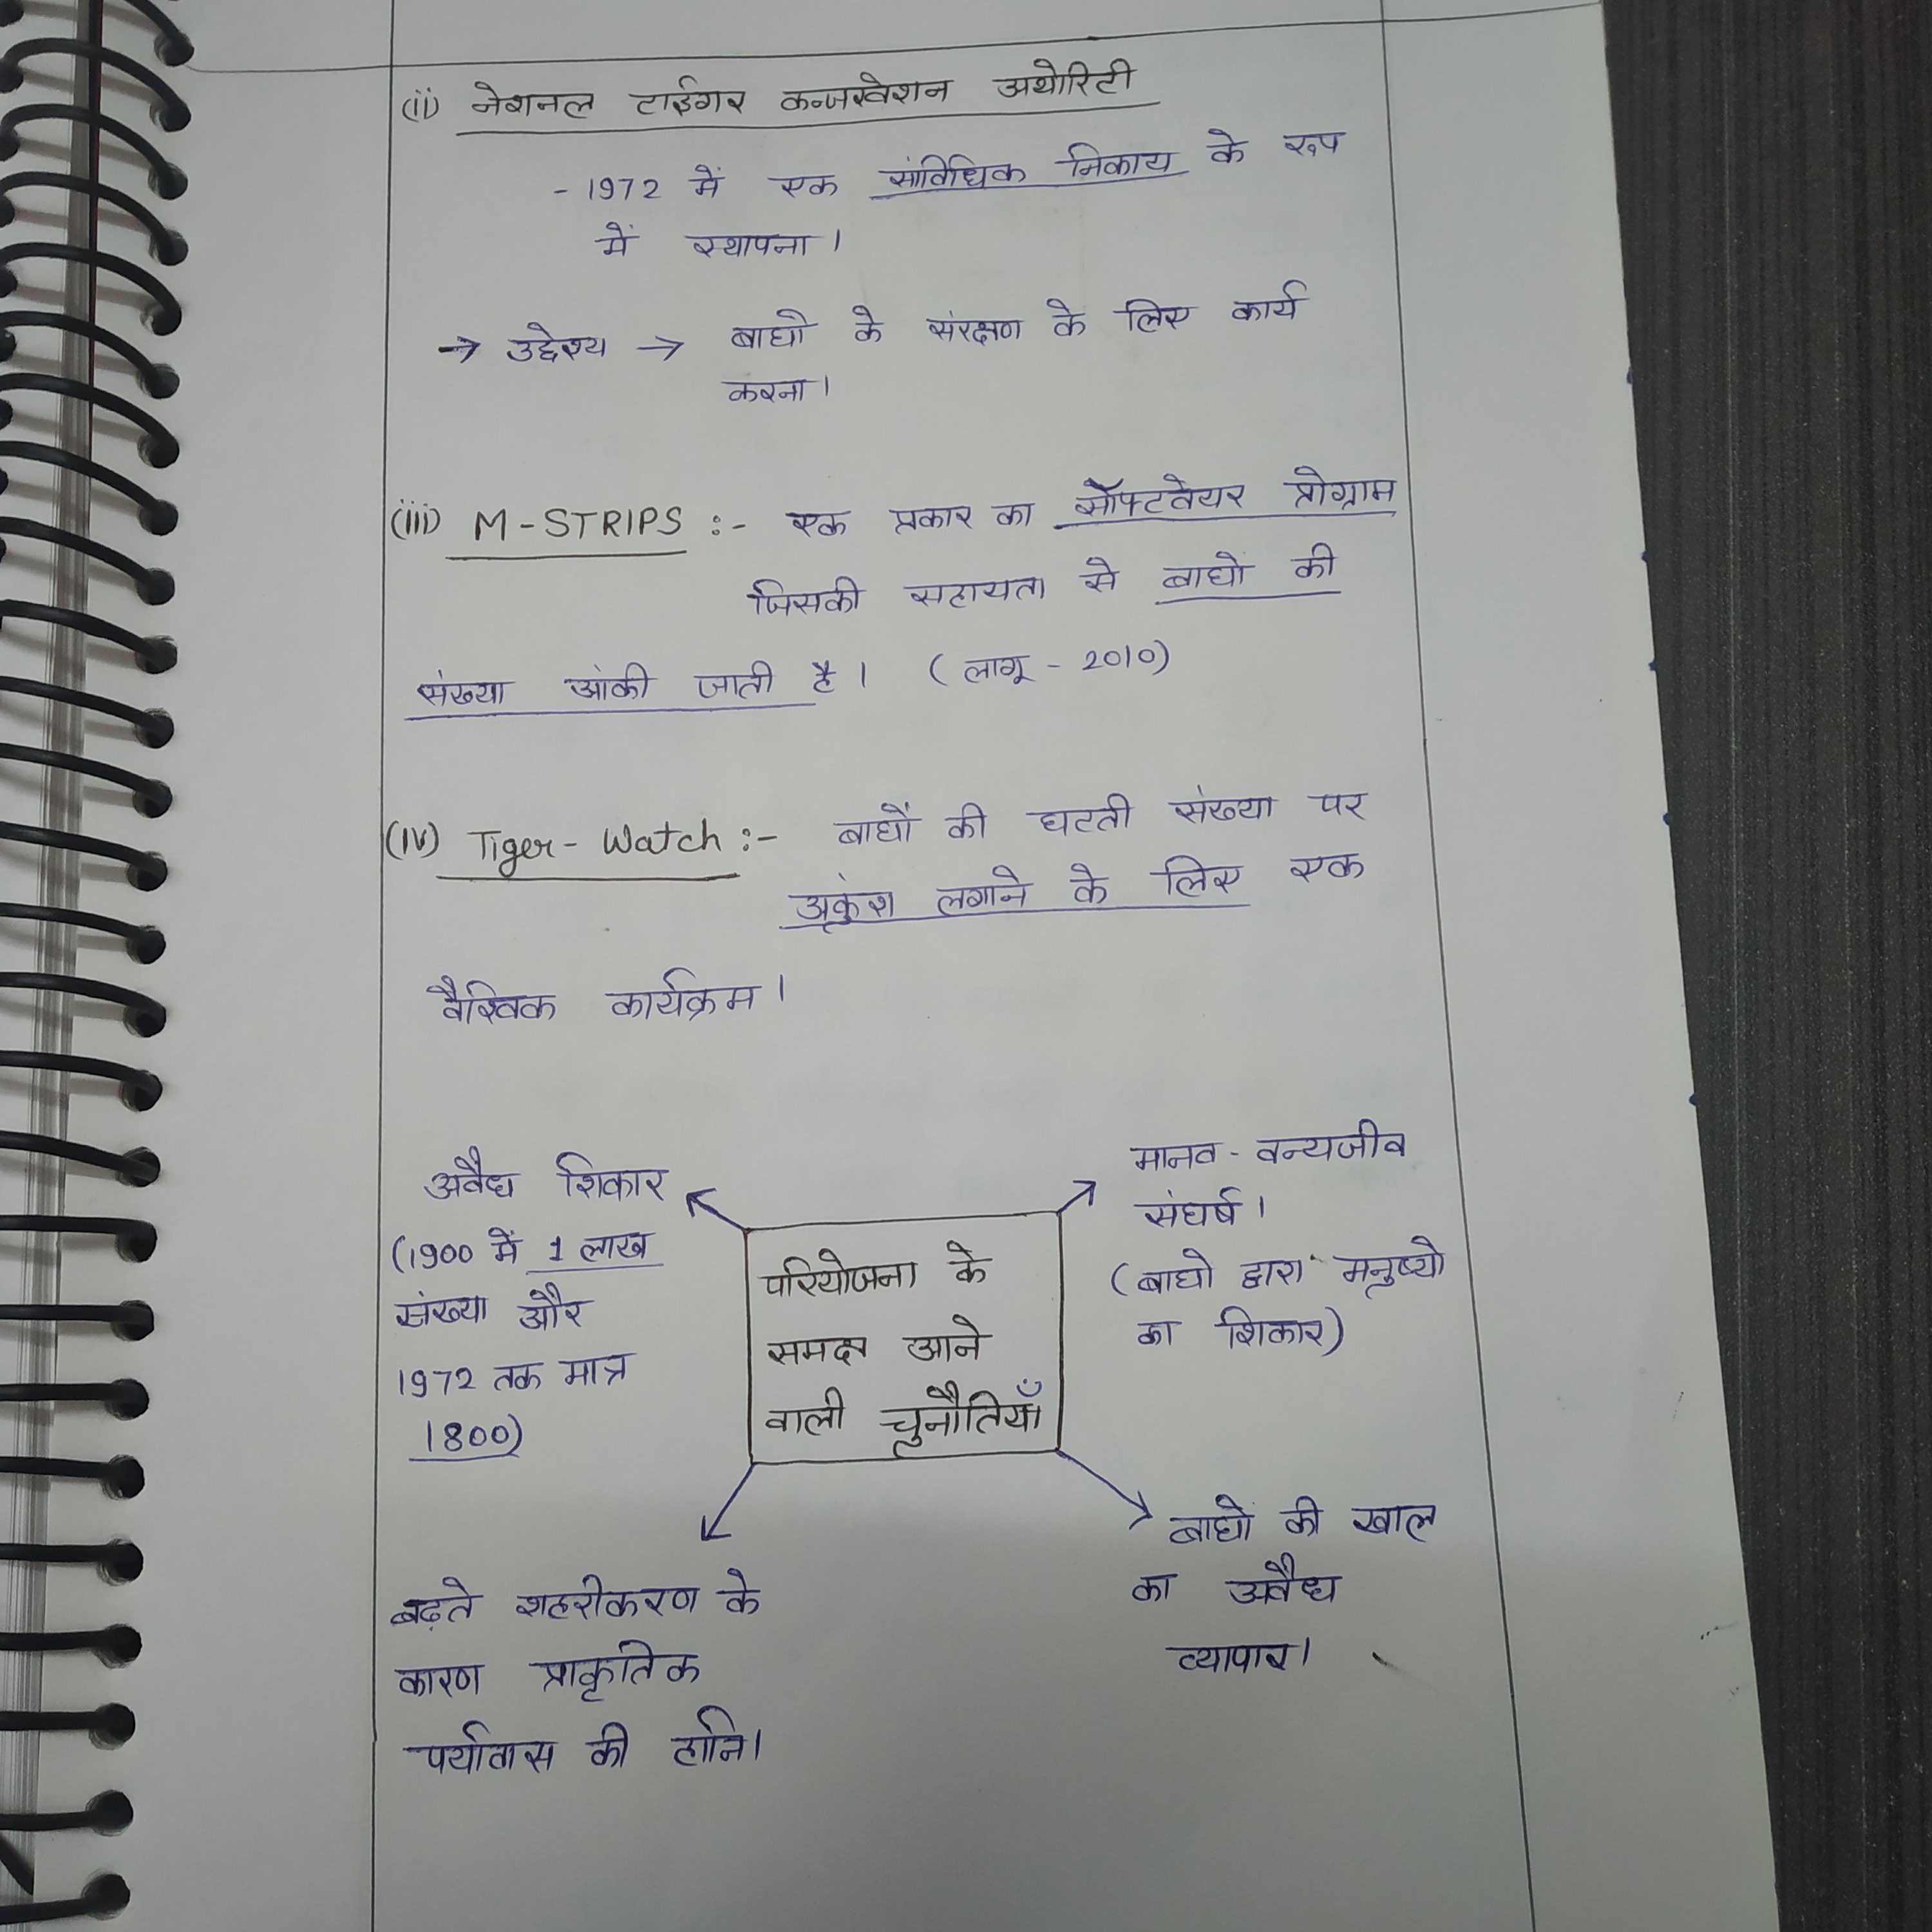 (ii) नेशनल टाईगर कन्जरवेशन अथोरिटी
- 1972 में एक सांविधिक निकाय के रूप
में स्थापना।
→ उद्देश्य → बाघो के संरक्षण के लिए कार्य
करना।
(iii) M-STRIPS :- एक प्रकार का सॉफ्टवेयर प्रोग्राम
जिसकी सहायता से बाघों की
संख्या आंकी जाती है। (लागू - 2010)
(iv) Tiger-Watch :- बाघों की घटती संख्या पर
अकुंश लगाने के लिए एक
वैश्विक कार्यक्रम।
अवैध शिकार
(1900 में 1 लाख
संख्या और
1972 तक मात्र
1800)
मानव - वन्यजीव
संघर्ष।
(बाघो द्वारा मनुष्यो
का शिकार)
परियोजना के
समक्ष आने
वाली चुनौतियाँ
बढ़ते शहरीकरण के
कारण प्राकृतिक
पर्यावास की हानि।
बाघों की खाल
का अवैध
व्यापार।